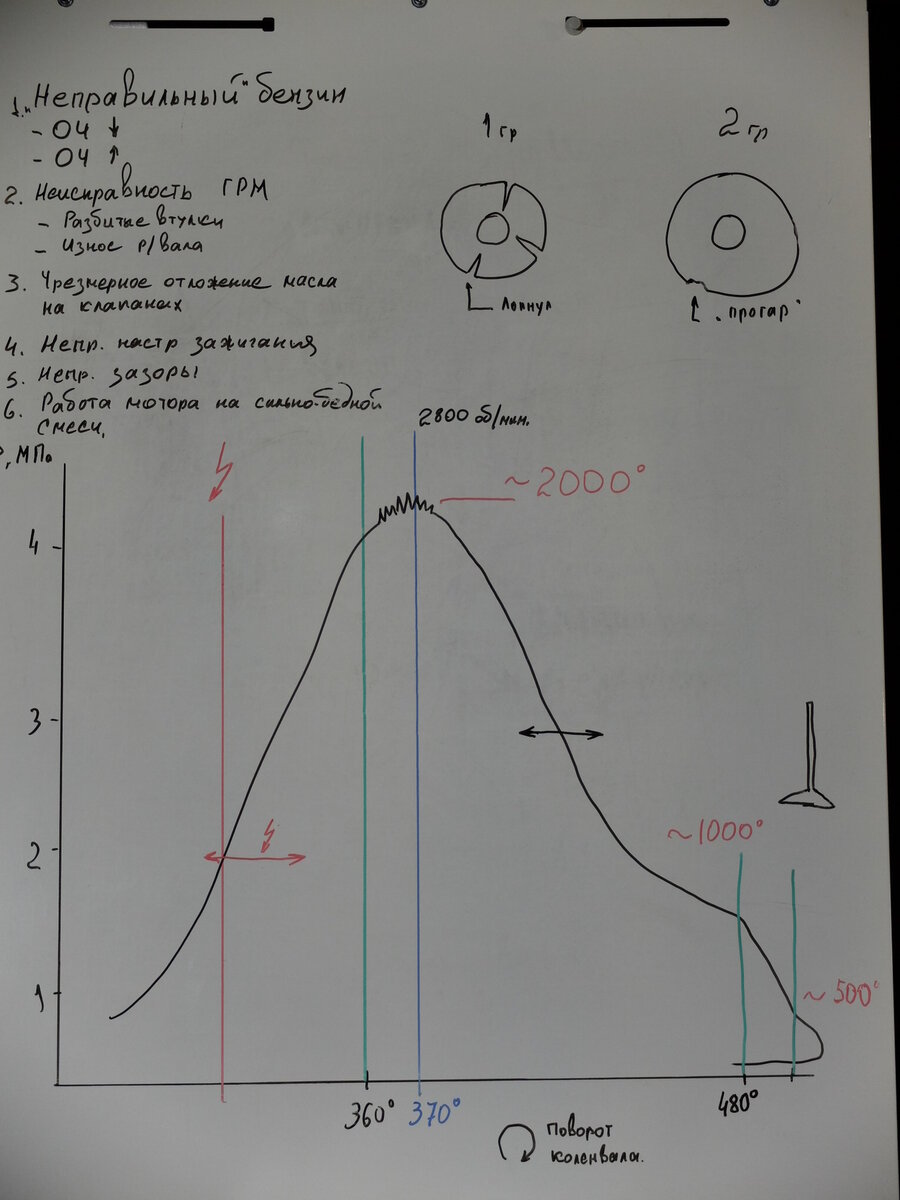 1. „Неправильный" бензин
- ОЧ ↓
- ОЧ ↑
2. Неисправность ГРМ
- Разбитые втулки
- Износ р/вала
3. Чрезмерное отложение масла
на клапанах
4. Непр. настр зажигания
5. Непр. зазоры
6. Работа мотора на сильно-бедной
смеси,
1 гр
2 гр
Лопнул
„прогар"
2800 об/мин.
Р, МПа
~2000°
4
3
2
1
~1000°
~500°
360°
370°
480°
Поворот
коленвала.